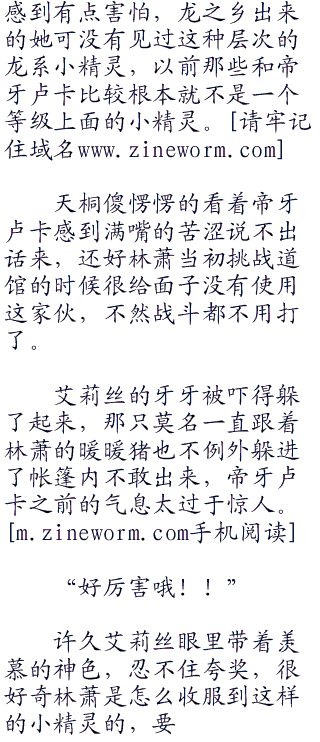 感到有点害怕，龙之乡出来
的她可没有见过这种层次的
龙系小精灵，以前那些和帝
牙卢卡比较根本就不是一个
等级上面的小精灵。[请牢记
住域名www.zineworm.com]
天桐傻愣愣的看着帝牙
卢卡感到满嘴的苦涩说不出
话来，还好林萧当初挑战道
馆的时候很给面子没有使用
这家伙，不然战斗都不用打
了。
艾莉丝的牙牙被吓得躲
了起来，那只莫名一直跟着
林萧的暖暖猪也不例外躲进
了帐篷内不敢出来，帝牙卢
卡之前的气息太过于惊人。
[m.zineworm.com手机阅读]
“好厉害哦！！”
许久艾莉丝眼里带着羡
慕的神色，忍不住夸奖，很
好奇林萧是怎么收服到这样
的小精灵的，要